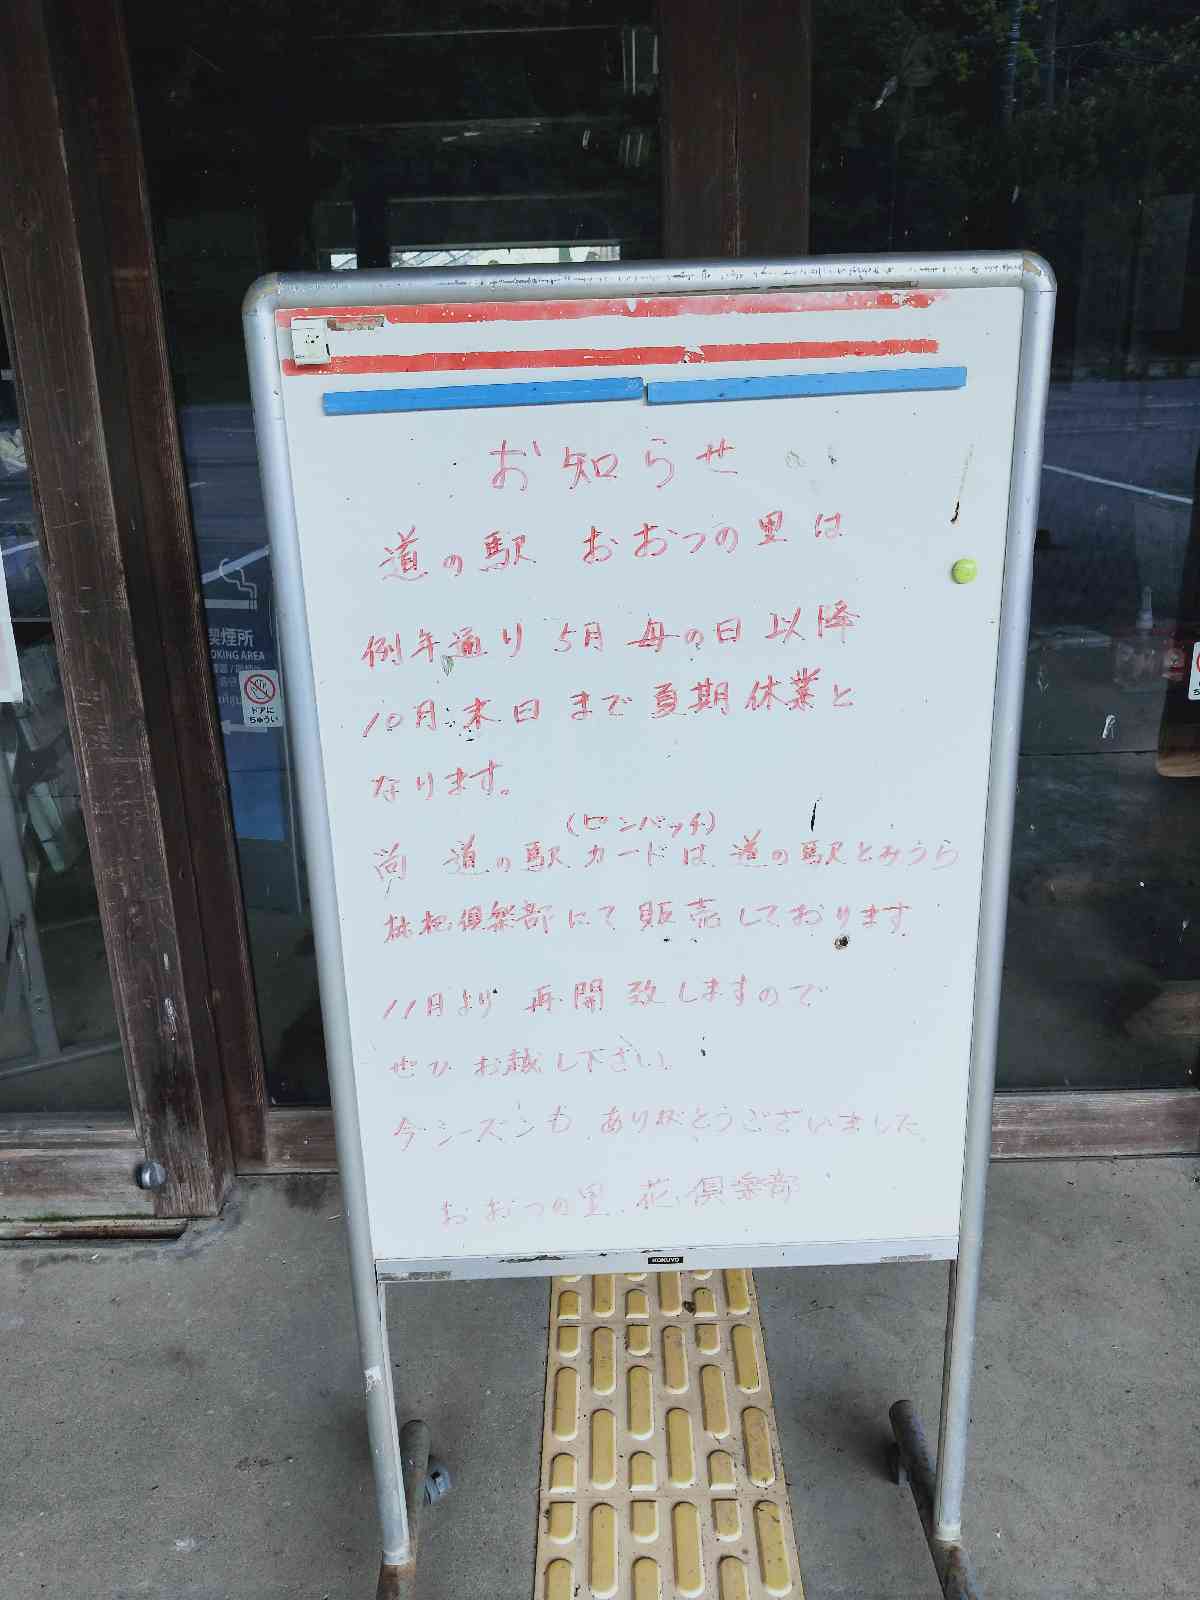 お知らせ
道の駅 おおつの里は
例年通り 5月 母の日 以降
10月末日まで夏期休業と
なります。
(ピンバッチ)
尚 道の駅カードは 道の駅とみうら
枇杷倶楽部にて販売しております
11月より 再開致しますので
ぜひ お越し下さい。
今シーズンも ありがとうございました。
おおつの里 花倶楽部
KOKUYO
喫煙所
OKING AREA
ドアに
ちゅうい